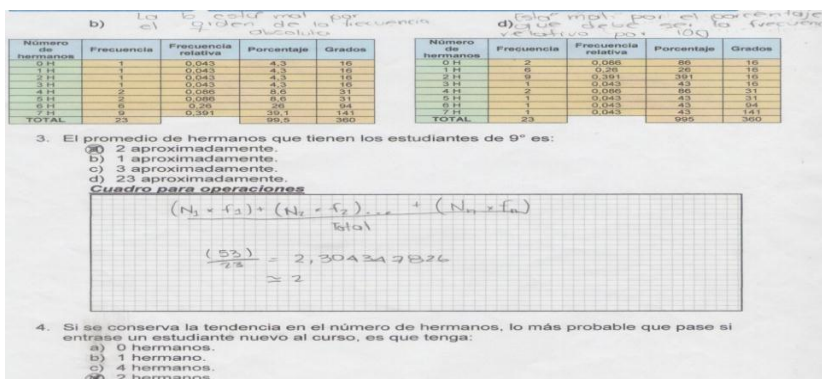 La b está mal por
b) el orden de la frecuencia
absoluta
Número de hermanos Frecuencia Frecuencia relativa Porcentaje Grados
0 H 1 0,043 4,3 16
1 H 1 0,043 4,3 16
2 H 1 0,043 4,3 16
3 H 1 0,043 4,3 16
4 H 2 0,086 8,6 31
5 H 2 0,086 8,6 31
6 H 6 0,26 26 94
7 H 9 0,391 39,1 141
TOTAL 23 99,5 360
mal por el porcentaje
d) que debe ser la
relativa por 100
Número de hermanos Frecuencia Frecuencia relativa Porcentaje Grados
0 H 2 0,086 86 16
1 H 6 0,26 26 16
2 H 9 0,391 391 16
3 H 1 0,043 43 16
4 H 2 0,086 86 31
5 H 1 0,043 43 31
6 H 1 0,043 43 94
7 H 1 0,043 43 141
TOTAL 23 995 360
3. El promedio de hermanos que tienen los estudiantes de 9° es:
a) 2 aproximadamente.
b) 1 aproximadamente.
c) 3 aproximadamente.
d) 23 aproximadamente.
Cuadro para operaciones
(N1 × f1) + (N2 × f2)... + (Nn × fn)
Total
(53)
23 = 2,304347826
≃ 2
4. Si se conserva la tendencia en el número de hermanos, lo más probable que pase si
entrase un estudiante nuevo al curso, es que tenga:
a) 0 hermanos.
b) 1 hermano.
c) 4 hermanos.
2 hermanos